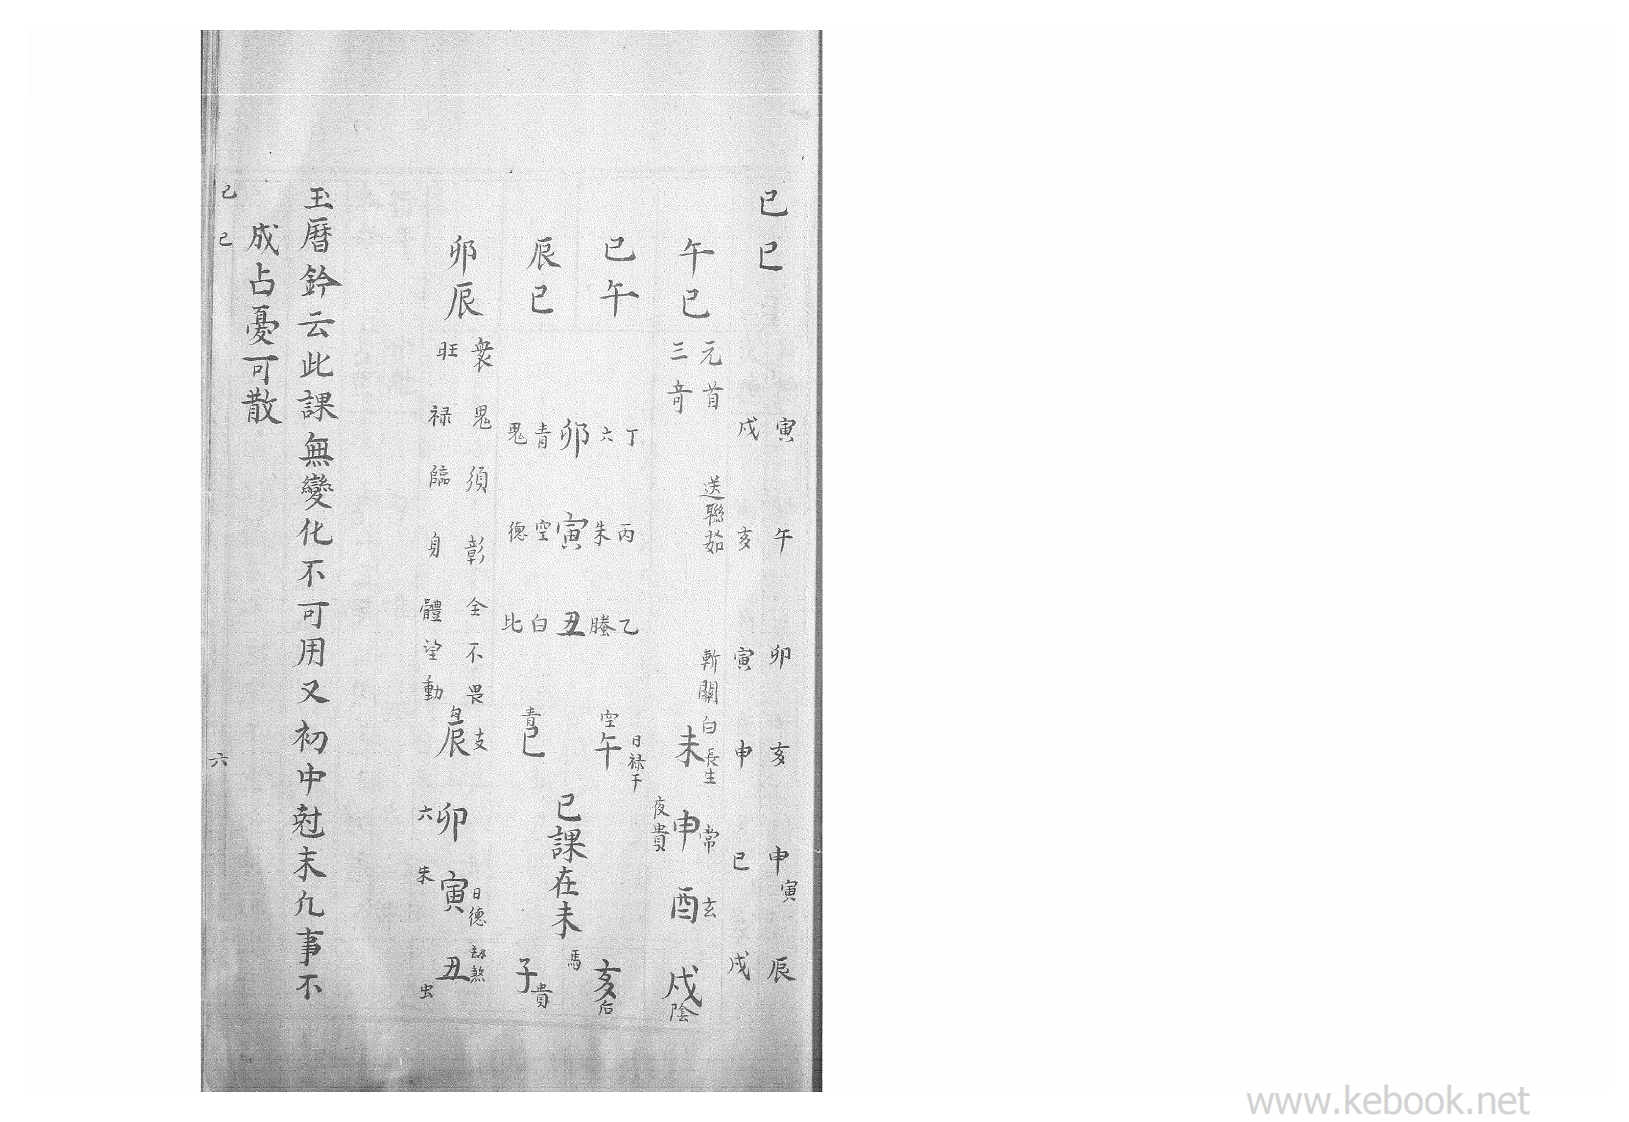 己巳
寅午卯亥申寅辰
戌亥寅申巳戌
午巳
元首
三奇
送聯茹
斬關
白長生常玄
未申酉戌陰
夜貴
巳午
辰巳
卯辰
丁丙乙
六朱螣
卯寅丑
青空白
鬼德比
日祿干
空午
亥后
馬
己課在未
青巳
子貴
衆鬼須彰全不畏
旺祿臨身體望動
支
辰卯寅丑
日德
劫煞
六朱虫
玉曆鈐云此課無變化不可用又初中尅末凡事不
成占憂可散
己巳 六
www.kebook.net